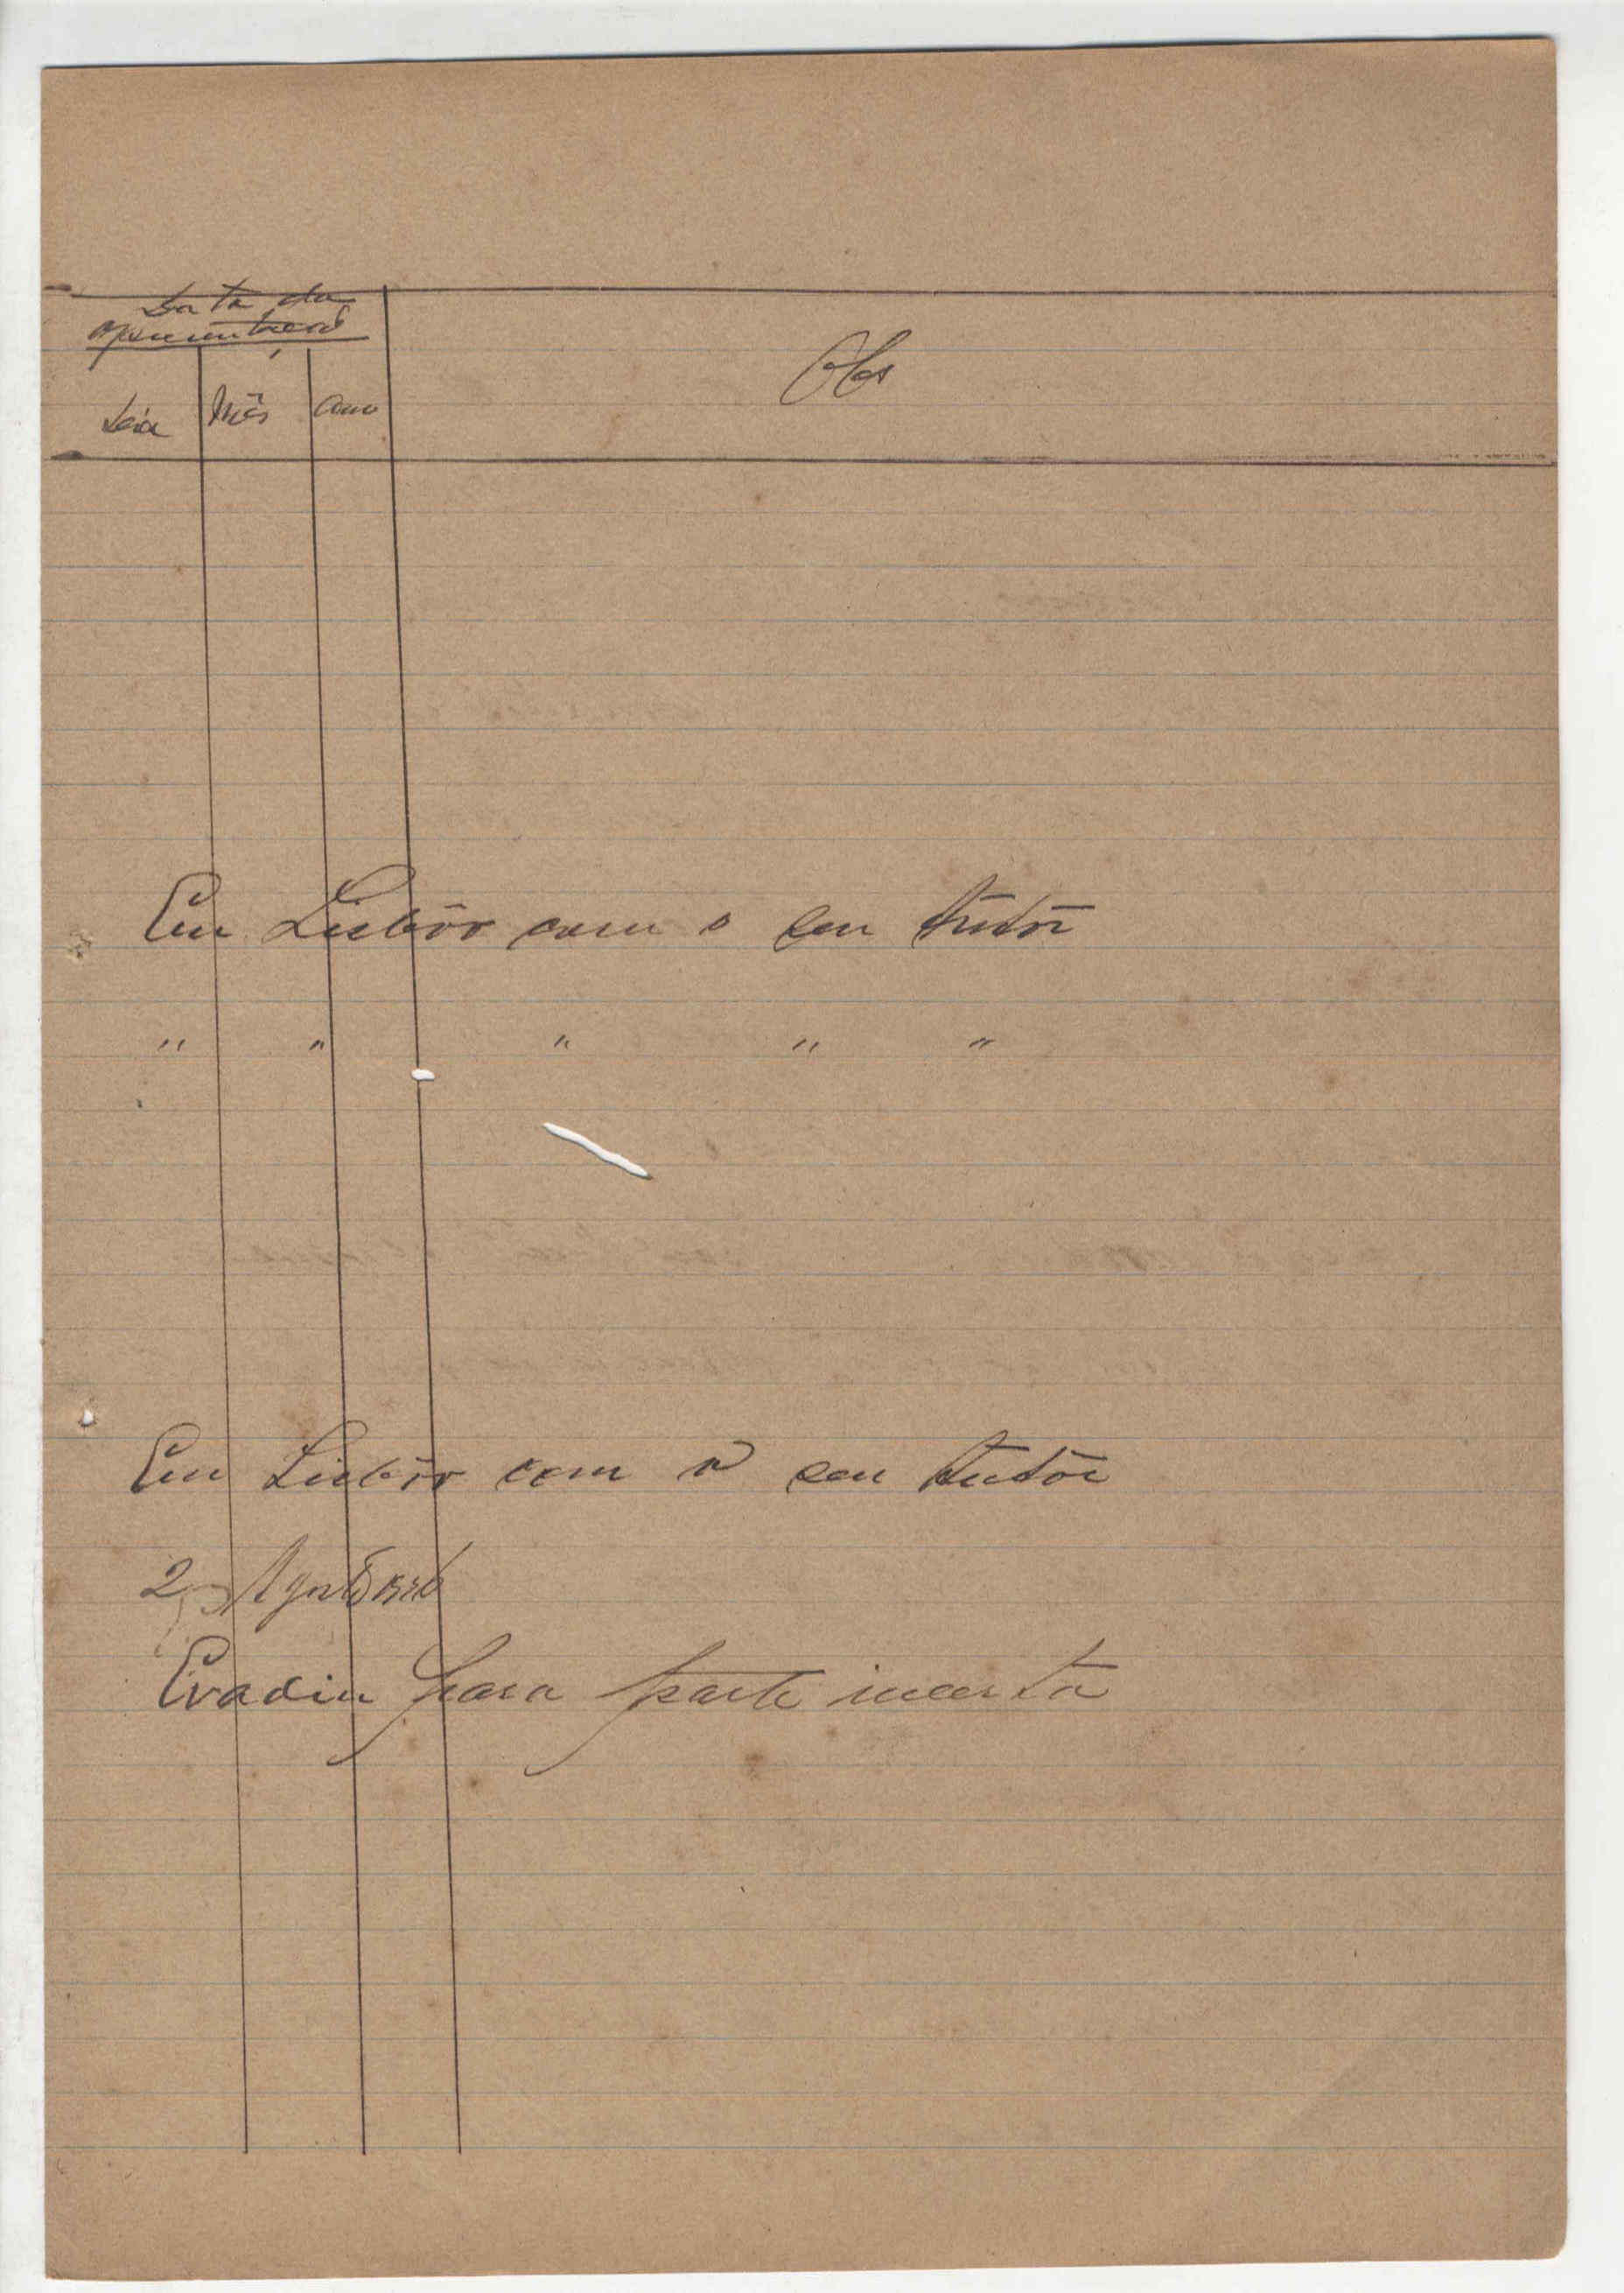 Data da
apresentação
Dia Mês Ano
Obs
Em Lisbôa com o seu tutôr
" " " " "
Em Lisbôa com o seu tutôr
2 Agosto
Evadiu para parte incerta